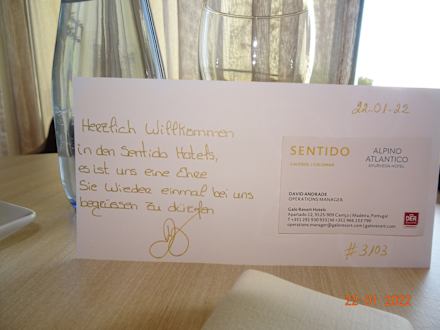 22-01-22
Herzlich Willkommen
in den Sentido Hotels,
es ist uns eine Ehre
Sie Wieder einmal bei uns
begrüssen zu dürfen
SENTIDO
ALPINO
ATLANTICO
AYURVEDA HOTEL
DAVID ANDRADE
OPERATIONS MANAGER
Galo Resort Hotels
Apartado 12, 9125-909 Caniço | Madeira, Portugal
operations.manager@galoresort.com | galoresort.com
DER
#3103
22 01 2022